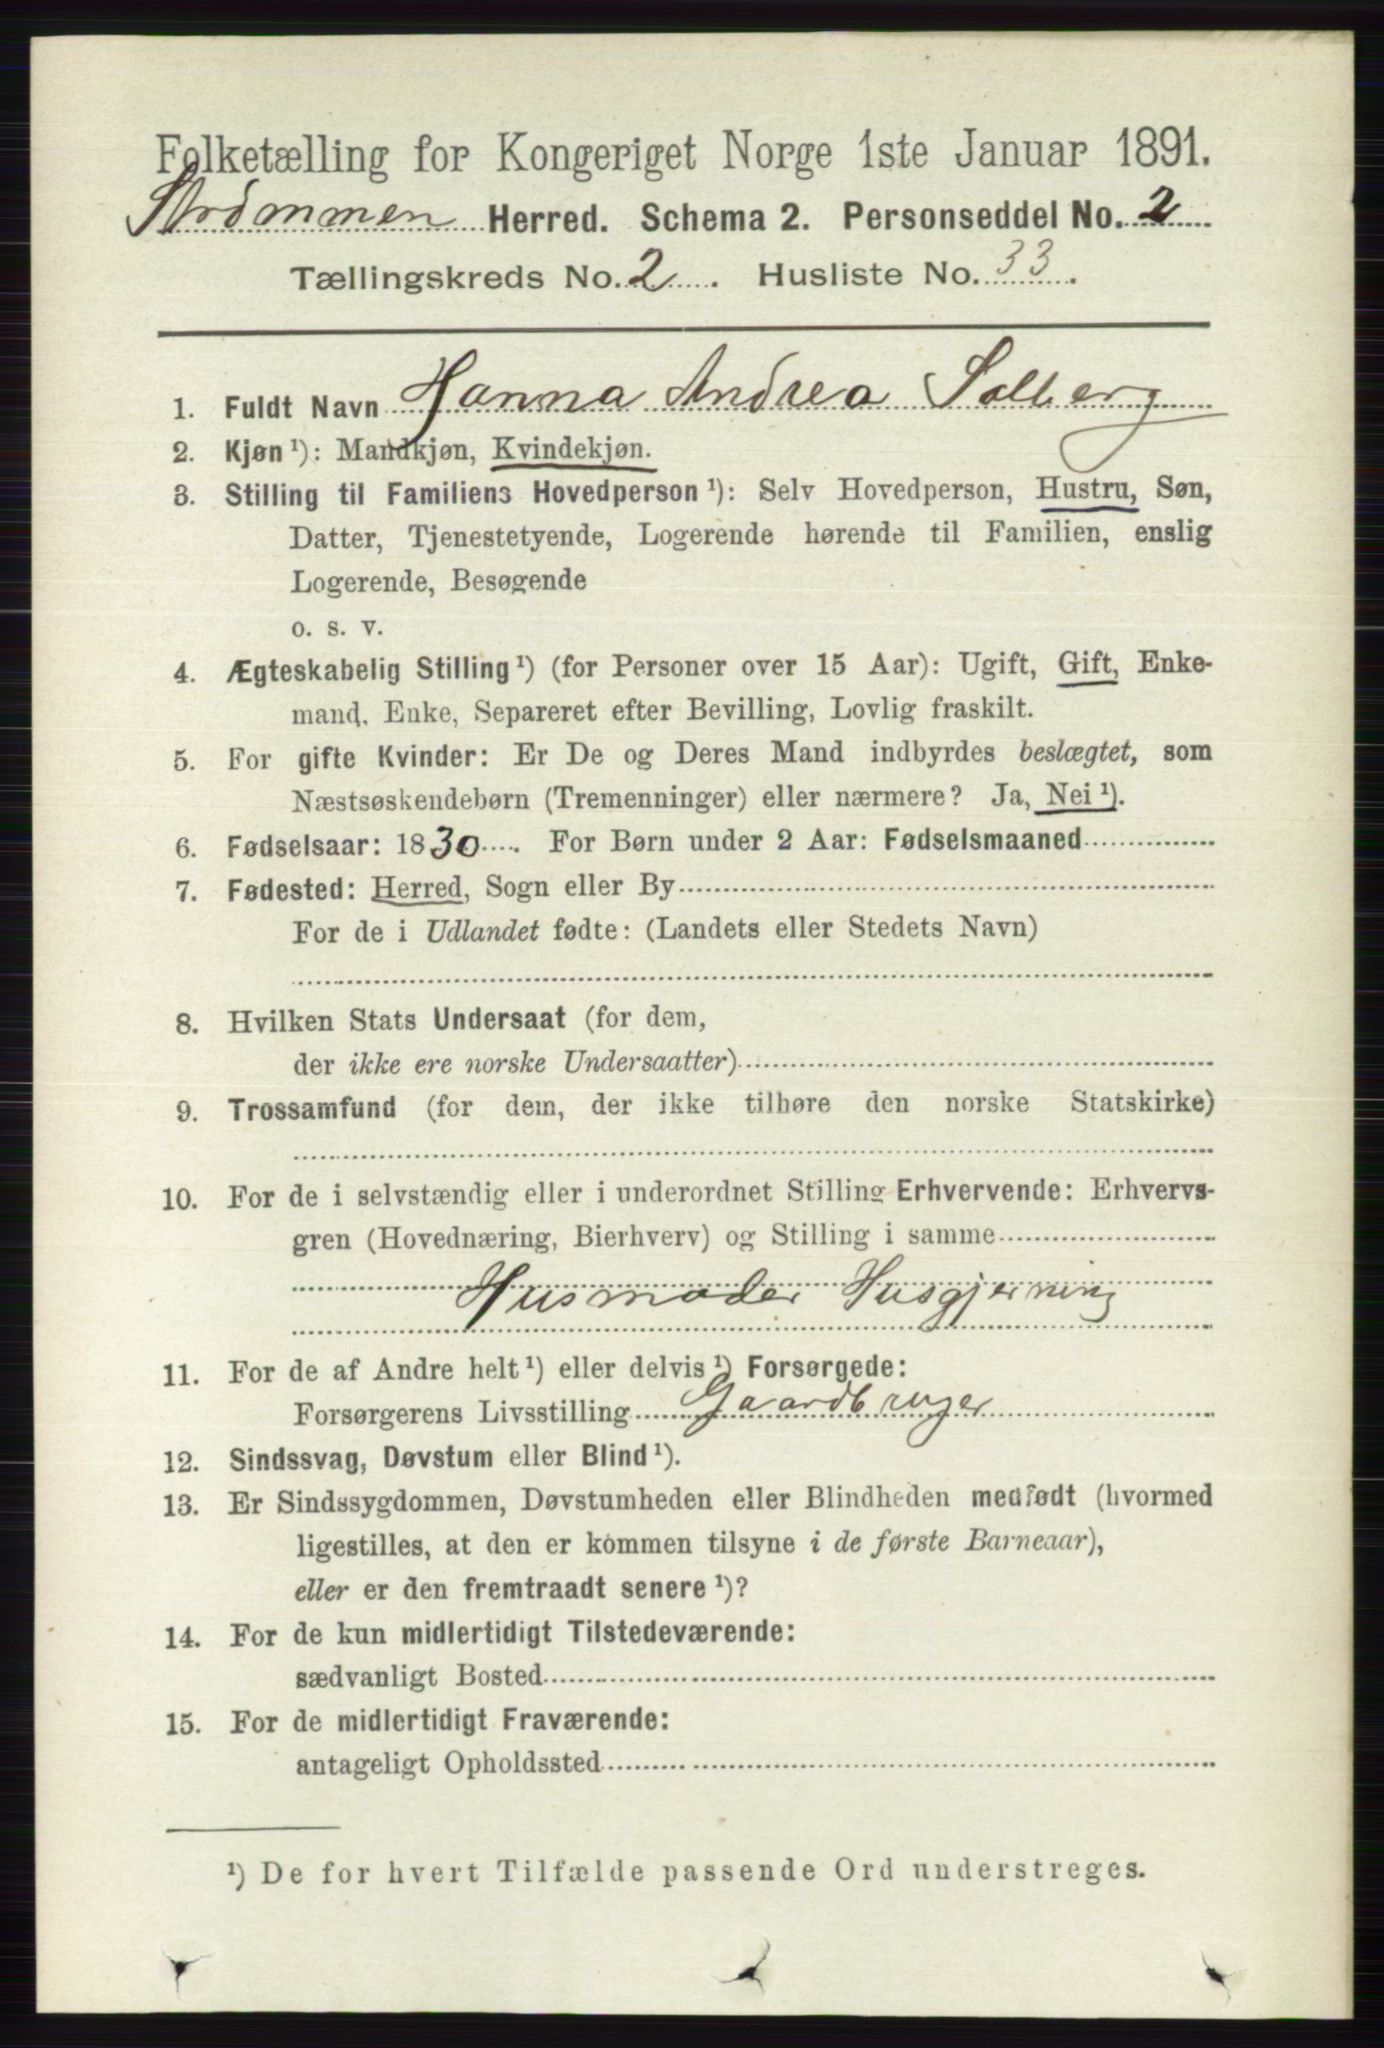 Folketælling for Kongeriget Norge 1ste Januar 1891.
Strømmen Herred. Schema 2. Personseddel No. 2
Tællingskreds No. 2. Husliste No. 33.
1. Fuldt Navn Hanna Andrea Solberg
2. Kjøn ¹): Mandkjøn, Kvindekjøn.
3. Stilling til Familiens Hovedperson ¹): Selv Hovedperson, Hustru, Søn,
Datter, Tjenestetyende, Logerende hørende til Familien, enslig
Logerende, Besøgende
o. s. v.
4. Ægteskabelig Stilling ¹) (for Personer over 15 Aar): Ugift, Gift, Enke-
mand, Enke, Separeret efter Bevilling, Lovlig fraskilt.
5. For gifte Kvinder: Er De og Deres Mand indbyrdes beslægtet, som
Næstsøskendebørn (Tremenninger) eller nærmere? Ja, Nei ¹).
6. Fødselsaar: 1830. For Børn under 2 Aar: Fødselsmaaned
7. Fødested: Herred, Sogn eller By
For de i Udlandet fødte: (Landets eller Stedets Navn)
8. Hvilken Stats Undersaat (for dem,
der ikke ere norske Undersaatter)
9. Trossamfund (for dem, der ikke tilhøre den norske Statskirke)
10. For de i selvstændig eller i underordnet Stilling Erhvervende: Erhvervs-
gren (Hovednæring, Bierhverv) og Stilling i samme
Husmoder Husgjerning
11. For de af Andre helt ¹) eller delvis ¹) Forsørgede:
Forsørgerens Livsstilling Gaardbruger
12. Sindssvag, Døvstum eller Blind ¹).
13. Er Sindssygdommen, Døvstumheden eller Blindheden medfødt (hvormed
ligestilles, at den er kommen tilsyne i de første Barneaar),
eller er den fremtraadt senere ¹)?
14. For de kun midlertidigt Tilstedeværende:
sædvanligt Bosted
15. For de midlertidigt Fraværende:
antageligt Opholdssted
¹) De for hvert Tilfælde passende Ord understreges.